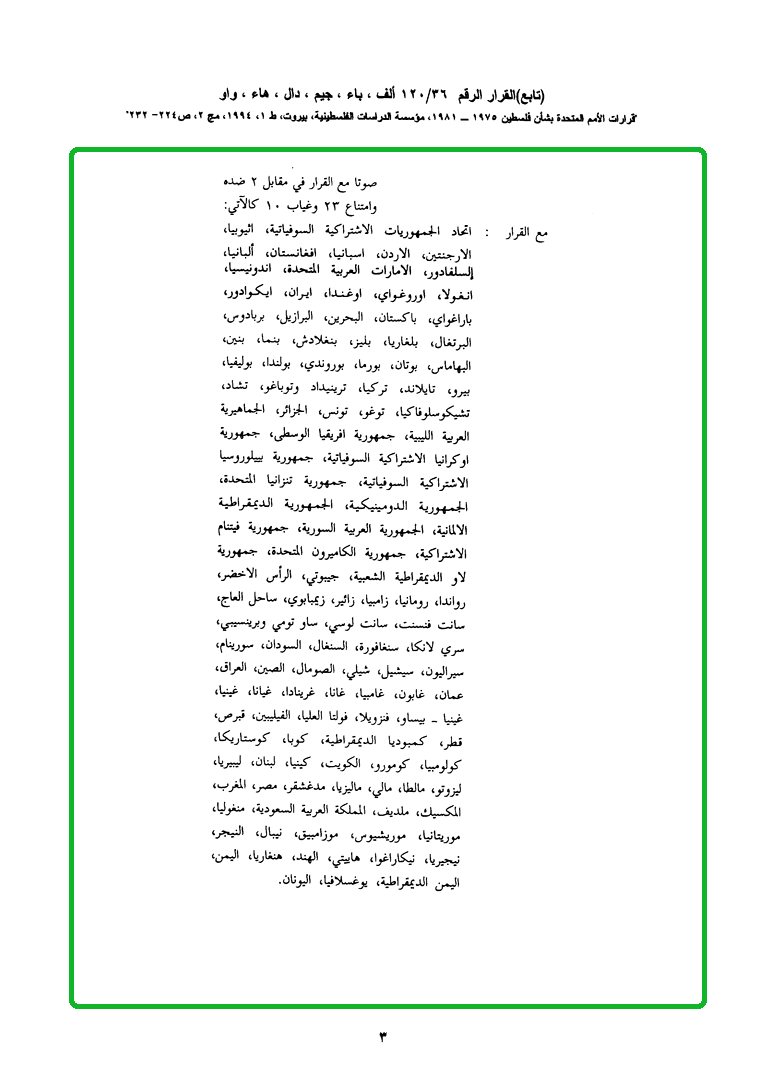 (تابع)القرار الرقم ١٢٠/٣٦ ألف ، باء ، جيم ، دال ، هاء ، واو
"قرارات الأمم المتحدة بشأن فلسطين ١٩٧٥ ــ ١٩٨١، مؤسسة الدراسات الفلسطينية، بيروت، ط ١، ١٩٩٤، مج ٢، ص٢٢٤- ٢٣٢"
صوتا مع القرار في مقابل ٢ ضده
وامتناع ٢٣ وغياب ١٠ كالآتي:
مع القرار : اتحاد الجمهوريات الاشتراكية السوفياتية، اثيوبيا،
الارجنتين، الاردن، اسبانيا، افغانستان، ألبانيا،
إلسلفادور، الامارات العربية المتحدة، اندونيسيا،
انغولا، اوروغواي، اوغندا، ايران، ايكوادور،
باراغواي، باكستان، البحرين، البرازيل، بربادوس،
البرتغال، بلغاريا، بليز، بنغلادش، بنما، بنين،
البهاماس، بوتان، بورما، بوروندي، بولندا، بوليفيا،
بيرو، تايلاند، تركيا، ترينيداد وتوباغو، تشاد،
تشيكوسلوفاكيا، توغو، تونس، الجزائر، الجماهيرية
العربية الليبية، جمهورية افريقيا الوسطى، جمهورية
اوكرانيا الاشتراكية السوفياتية، جمهورية بييلوروسيا
الاشتراكية السوفياتية، جمهورية تنزانيا المتحدة،
الجمهورية الدومينيكية، الجمهورية الديمقراطية
الالمانية، الجمهورية العربية السورية، جمهورية فيتنام
الاشتراكية، جمهورية الكاميرون المتحدة، جمهورية
لاو الديمقراطية الشعبية، جيبوتي، الرأس الاخضر،
رواندا، رومانيا، زامبيا، زائير، زيمبابوي، ساحل العاج،
سانت فنسنت، سانت لوسي، ساو تومي وبرينسيبي،
سري لانكا، سنغافورة، السنغال، السودان، سورينام،
سيراليون، سيشيل، شيلي، الصومال، الصين، العراق،
عمان، غابون، غامبيا، غانا، غرينادا، غيانا، غينيا،
غينيا ــ بيساو، فنزويلا، فولتا العليا، الفيليبين، قبرص،
قطر، كمبوديا الديمقراطية، كوبا، كوستاريكا،
كولومبيا، كومورو، الكويت، كينيا، لبنان، ليبيريا،
ليزوتو، مالطا، مالي، ماليزيا، مدغشقر، مصر، المغرب،
المكسيك، ملديف، المملكة العربية السعودية، منغوليا،
موريتانيا، موريشيوس، موزامبيق، نيبال، النيجر،
نيجيريا، نيكاراغوا، هاييتي، الهند، هنغاريا، اليمن،
اليمن الديمقراطية، يوغسلافيا، اليونان.
٣